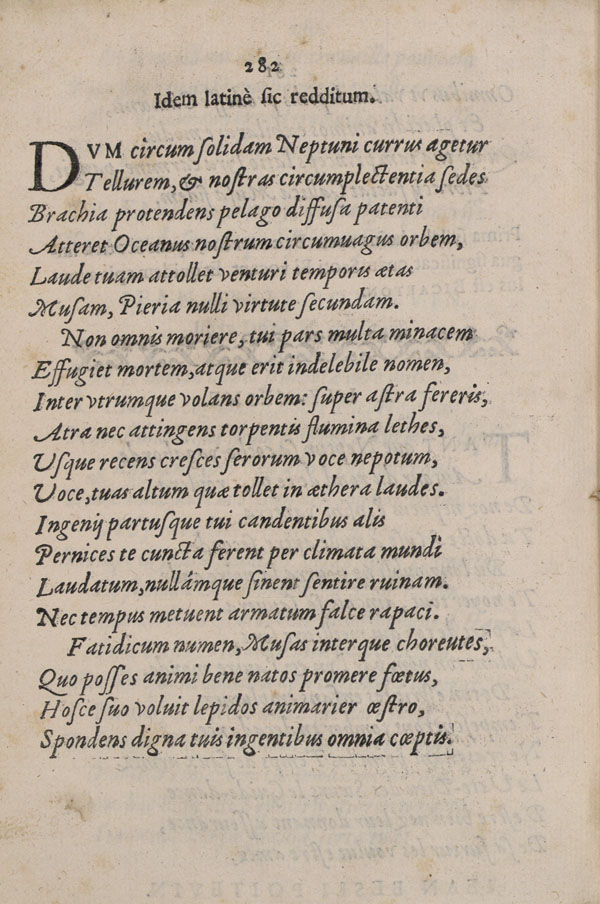 282
Idem latinè sic redditum.
DVM circum solidam Neptuni currus agetur
Tellurem, & nostras circumplectentia sedes
Brachia protendens pelago diffusa patenti
Atteret Oceanus nostrum circumuagus orbem,
Laude tuam attollet venturi temporis ætas
Musam, Pieria nulli virtute secundam.
Non omnis moriere, tui pars multa minacem
Effugiet mortem, atque erit indelebile nomen,
Inter vtrumque volans orbem: super astra fereris,
Atra nec attingens torpentis flumina lethes,
Usque recens cresces serorum voce nepotum,
Voce, tuas altum quæ tollet in æthera laudes.
Ingenij partusque tui candentibus alis
Pernices te cuncta ferent per climata mundi
Laudatum, nullámque sinent sentire ruinam.
Nec tempus metuent armatum falce rapaci.
Fatidicum numen, Musas interque choreutes,
Quo posses animi bene natos promere fœtus,
Hosce suo voluit lepidos animarier œstro,
Spondens digna tuis ingentibus omnia cœptis.